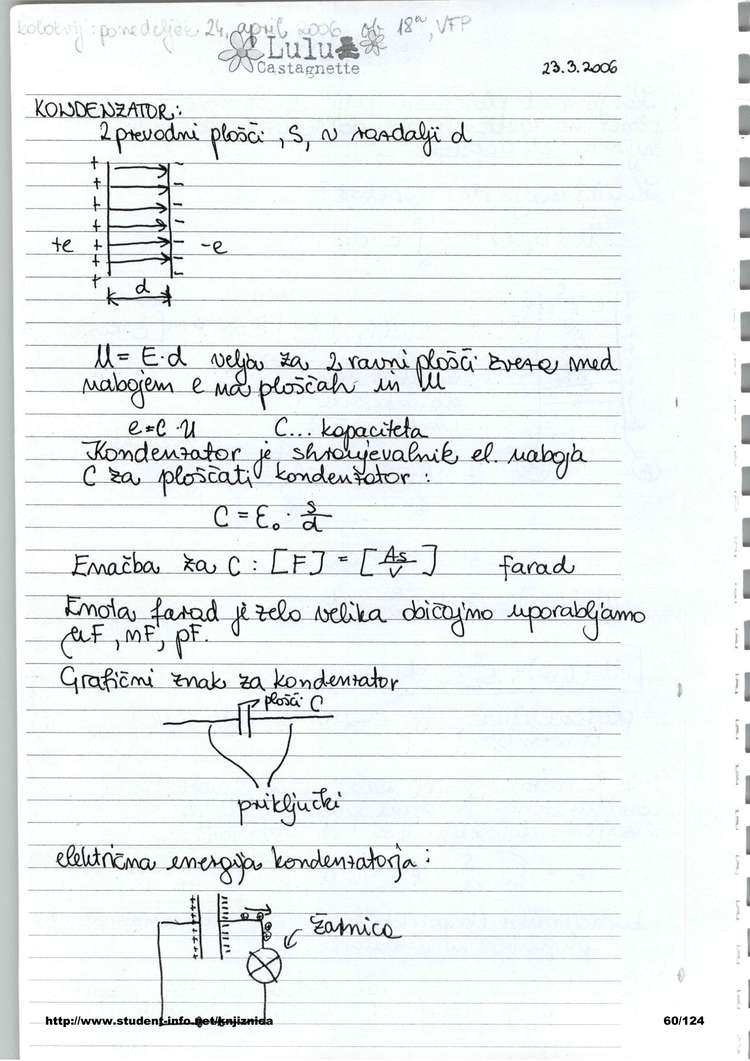 kolokvij: ponedeljek 24. april 2006 ob 18ʰ, VFP
Lulu
Castagnette
23.3.2006
KONDENZATOR:
2 prevodni plošči, S, v razdalji d
+ + + + + + +
- - - - - - -
+e
-e
d
U = E·d velja za 2 ravni plošči zveza med
nabojem e na ploščah in U
e=C·U C... kapaciteta
Kondenzator je shranjevalnik el. naboja
C za ploščati kondenzator:
C = ε₀ · S/d
Enačba za C: [F] = [As/V] farad
Enota farad je zelo velika običajno uporabljamo
μF, nF, pF.
Grafični znak za kondenzator
plošči C
priključki
električna energija kondenzatorja:
žarnica
http://www.student-info.net/knjiznica
60/124